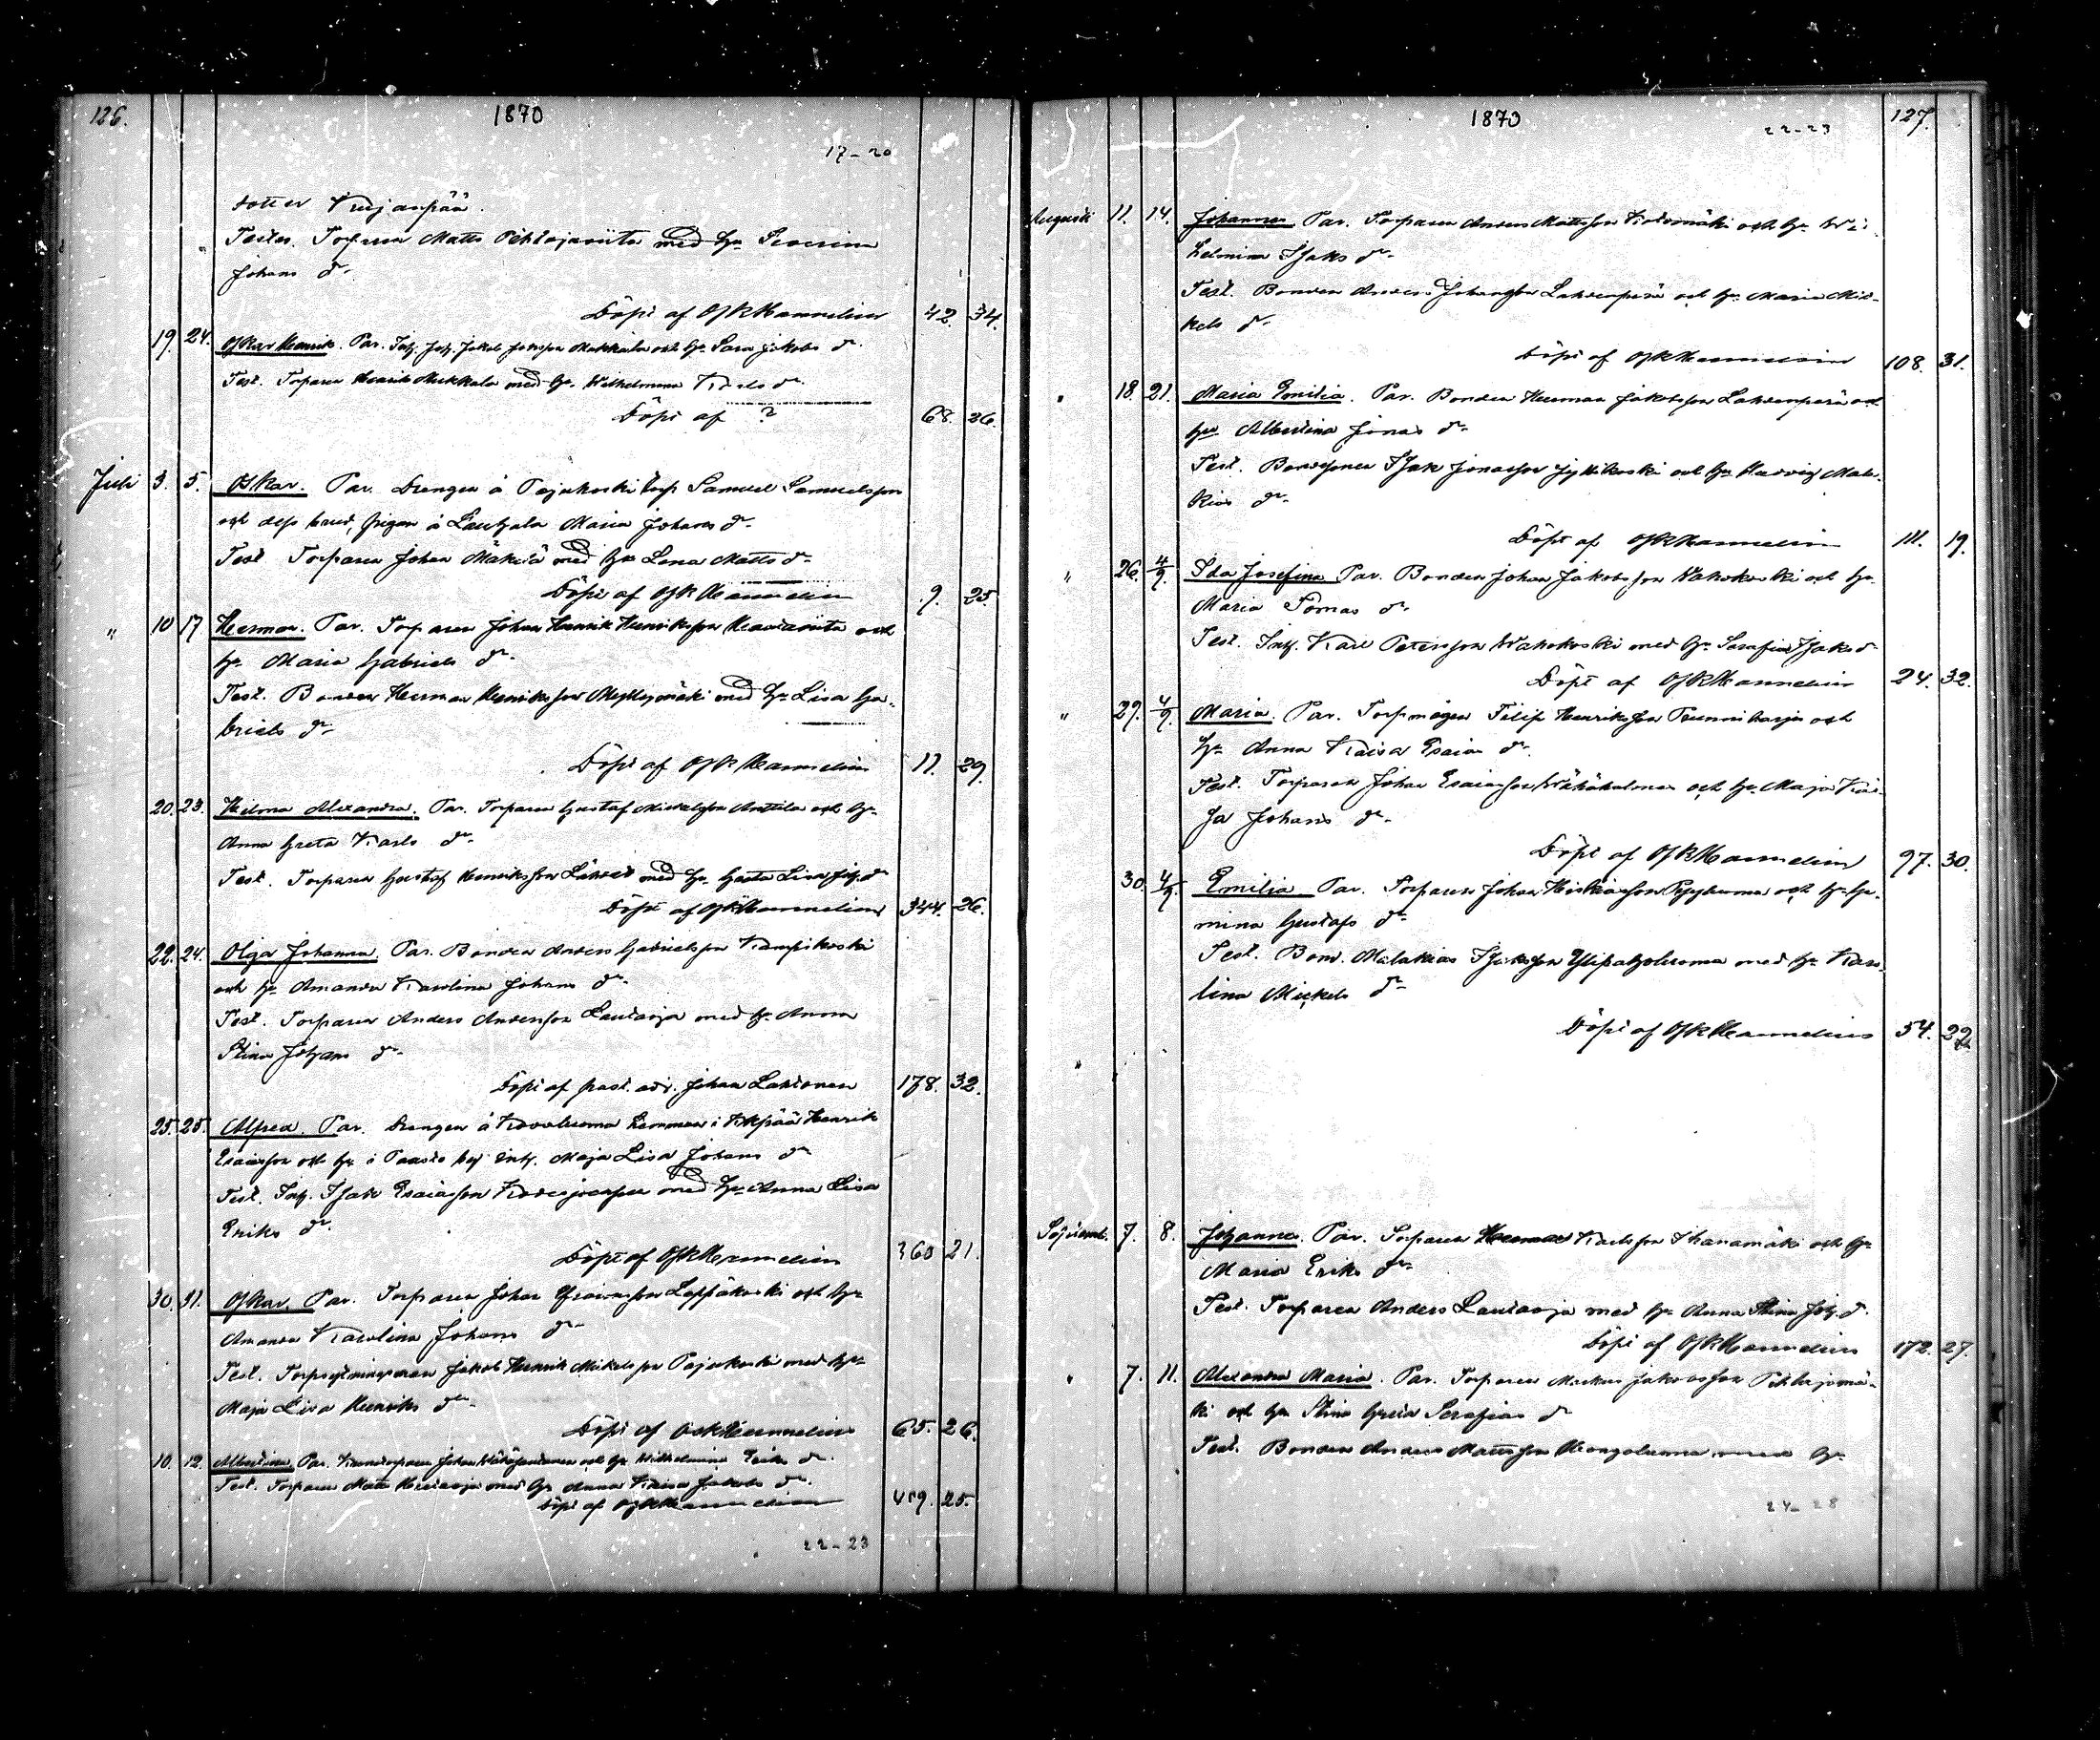 126.
1870
17-20
dotter Kujanpää.
Testes. Torparen Matts Pihlajaviita med hu Severina
Johans dr.
Döpt af OskHannelius 42. 34.
19. 24. Oskar Henrik. Par. Inh. Joh. Jakob Johnsson Makkala och hu Sara Jakobs dr.
Test. Torparen Henrik Mukkala med hu Wilhelmina Karls dr.
Döpt af ? 68. 36.
Juli 3. 5. Oskar. Par. Drengen å Pajukoski torp Samuel Samuelsson
och dess brud, pigan å Lautjala Maria Johans dr.
Test Torparen Johan Mäkelä med hu Lena Matts dr.
Döpt af OskHannelius 9. 25.
" 10 17 Herman. Par. Torparen Johan Henrik Henriksson och
hu Maria Gabriels dr.
Test. Bonden Herman Henriksson Myllymäki med hu Lisa Ga-
briels dr.
Döpt af OskHannelius 11. 29.
20. 23. Hilma Alexandra. Par. Torparen Gustaf Mickelsson Anttila och hu
Anna Greta Karls dr.
Test. Torparen Gustaf Henriksson med hu Greta Lisa Joh. dr
Döpt af OskHannelius 344. 26.
22. 24. Olga Johanna. Par. Bonden Anders Gabrielsson Kampikoski
och hu Amanda Karolina Johans dr.
Test. Torparen Anders Andersson Lautaoja med hu Anna
Stina Johans dr.
Döpt af past. adj. Johan Lahtonen 178. 32.
25. 25. Alfred. Par. Drengen å Kovaluoma hemman i Ikpää Henrik
Esaiasson och hu i by inh. Maja Lisa Johans dr
Test. Inh. Isak Esaiasson med hu Anna Lisa
Eriks dr.
Döpt af OskHannelius 360 21.
30. 31. Oskar. Par. Torparen Johan Leppäkoski och hu
Amanda Karolina Johans dr
Test. Jakob Henrik Mikelsson Pajukoski med hu
Maja Lisa Henriks dr.
Döpt af OskHannelius 65. 26.
10. 12. Albertina. Par. Johan och hu Wilhelmina Eriks dr.
Test. Torparen Matts med hu Anna Kaisa Jakobs dr.
Döpt af OskHannelius 459. 25.
22-23
1870
22-23
127.
Augusti 11. 14. Johannes. Par. Torparen Anders Mattsson Koivumäki och hu Wi-
helmina Isaks dr.
Test. Bonden Anders Johansson Lahdenperä och hu Maria Mic-
kels dr.
Döpt af OskHannelius 108. 31.
" 18. 21. Maria Emilia. Par. Bonden Herman Jakobsson Lahdenperä och
hu Albertina Jonas dr.
Test. Bondsonen Isak Jonasson Jyllikoski och hu Hedvig Mala-
kias dr.
Döpt af OskHannelius 111. 19.
" 26. 4/9. Ida Josefina Par. Bonden Johan Jakobsson Wahokoski och hu
Maria Tomas dr.
Test. Inh. Karl Petersson Wahokoski med hu Serafia Isaks dr
Döpt af OskHannelius 24. 32.
" 29. 4/9. Maria. Par. Torpmågen Filip Henriksson och
hu Anna Kaisa Esaias dr.
Test. Torparen Johan Esaiasson och hu Maja Kai-
sa Johans dr.
Döpt af OskHannelius 97. 30.
30. 4/9. Emilia Par. Torparen Johan och hu Ja-
mina Gustafs dr.
Test. Bond. Malakias Isaksson med hu Karo-
lina Mickels dr
Döpt af OskHannelius 54. 22.
"
Septemb. 7. 8. Johannes. Par. Torparen Herman Karlsson Ihanamäki och hu
Maria Eriks dr.
Test. Torparen Anders Lautaoja med hu Anna Stina Joh. dr.
Döpt af OskHannelius 172. 27.
" 7. 11. Alexandra Maria. Par. Torparen Markus Jakobsson Pihlajamä-
ki och hu Stina Greta Serafias dr
Test. Bonden Anders Mattsson Kongoluoma med hu
24-28